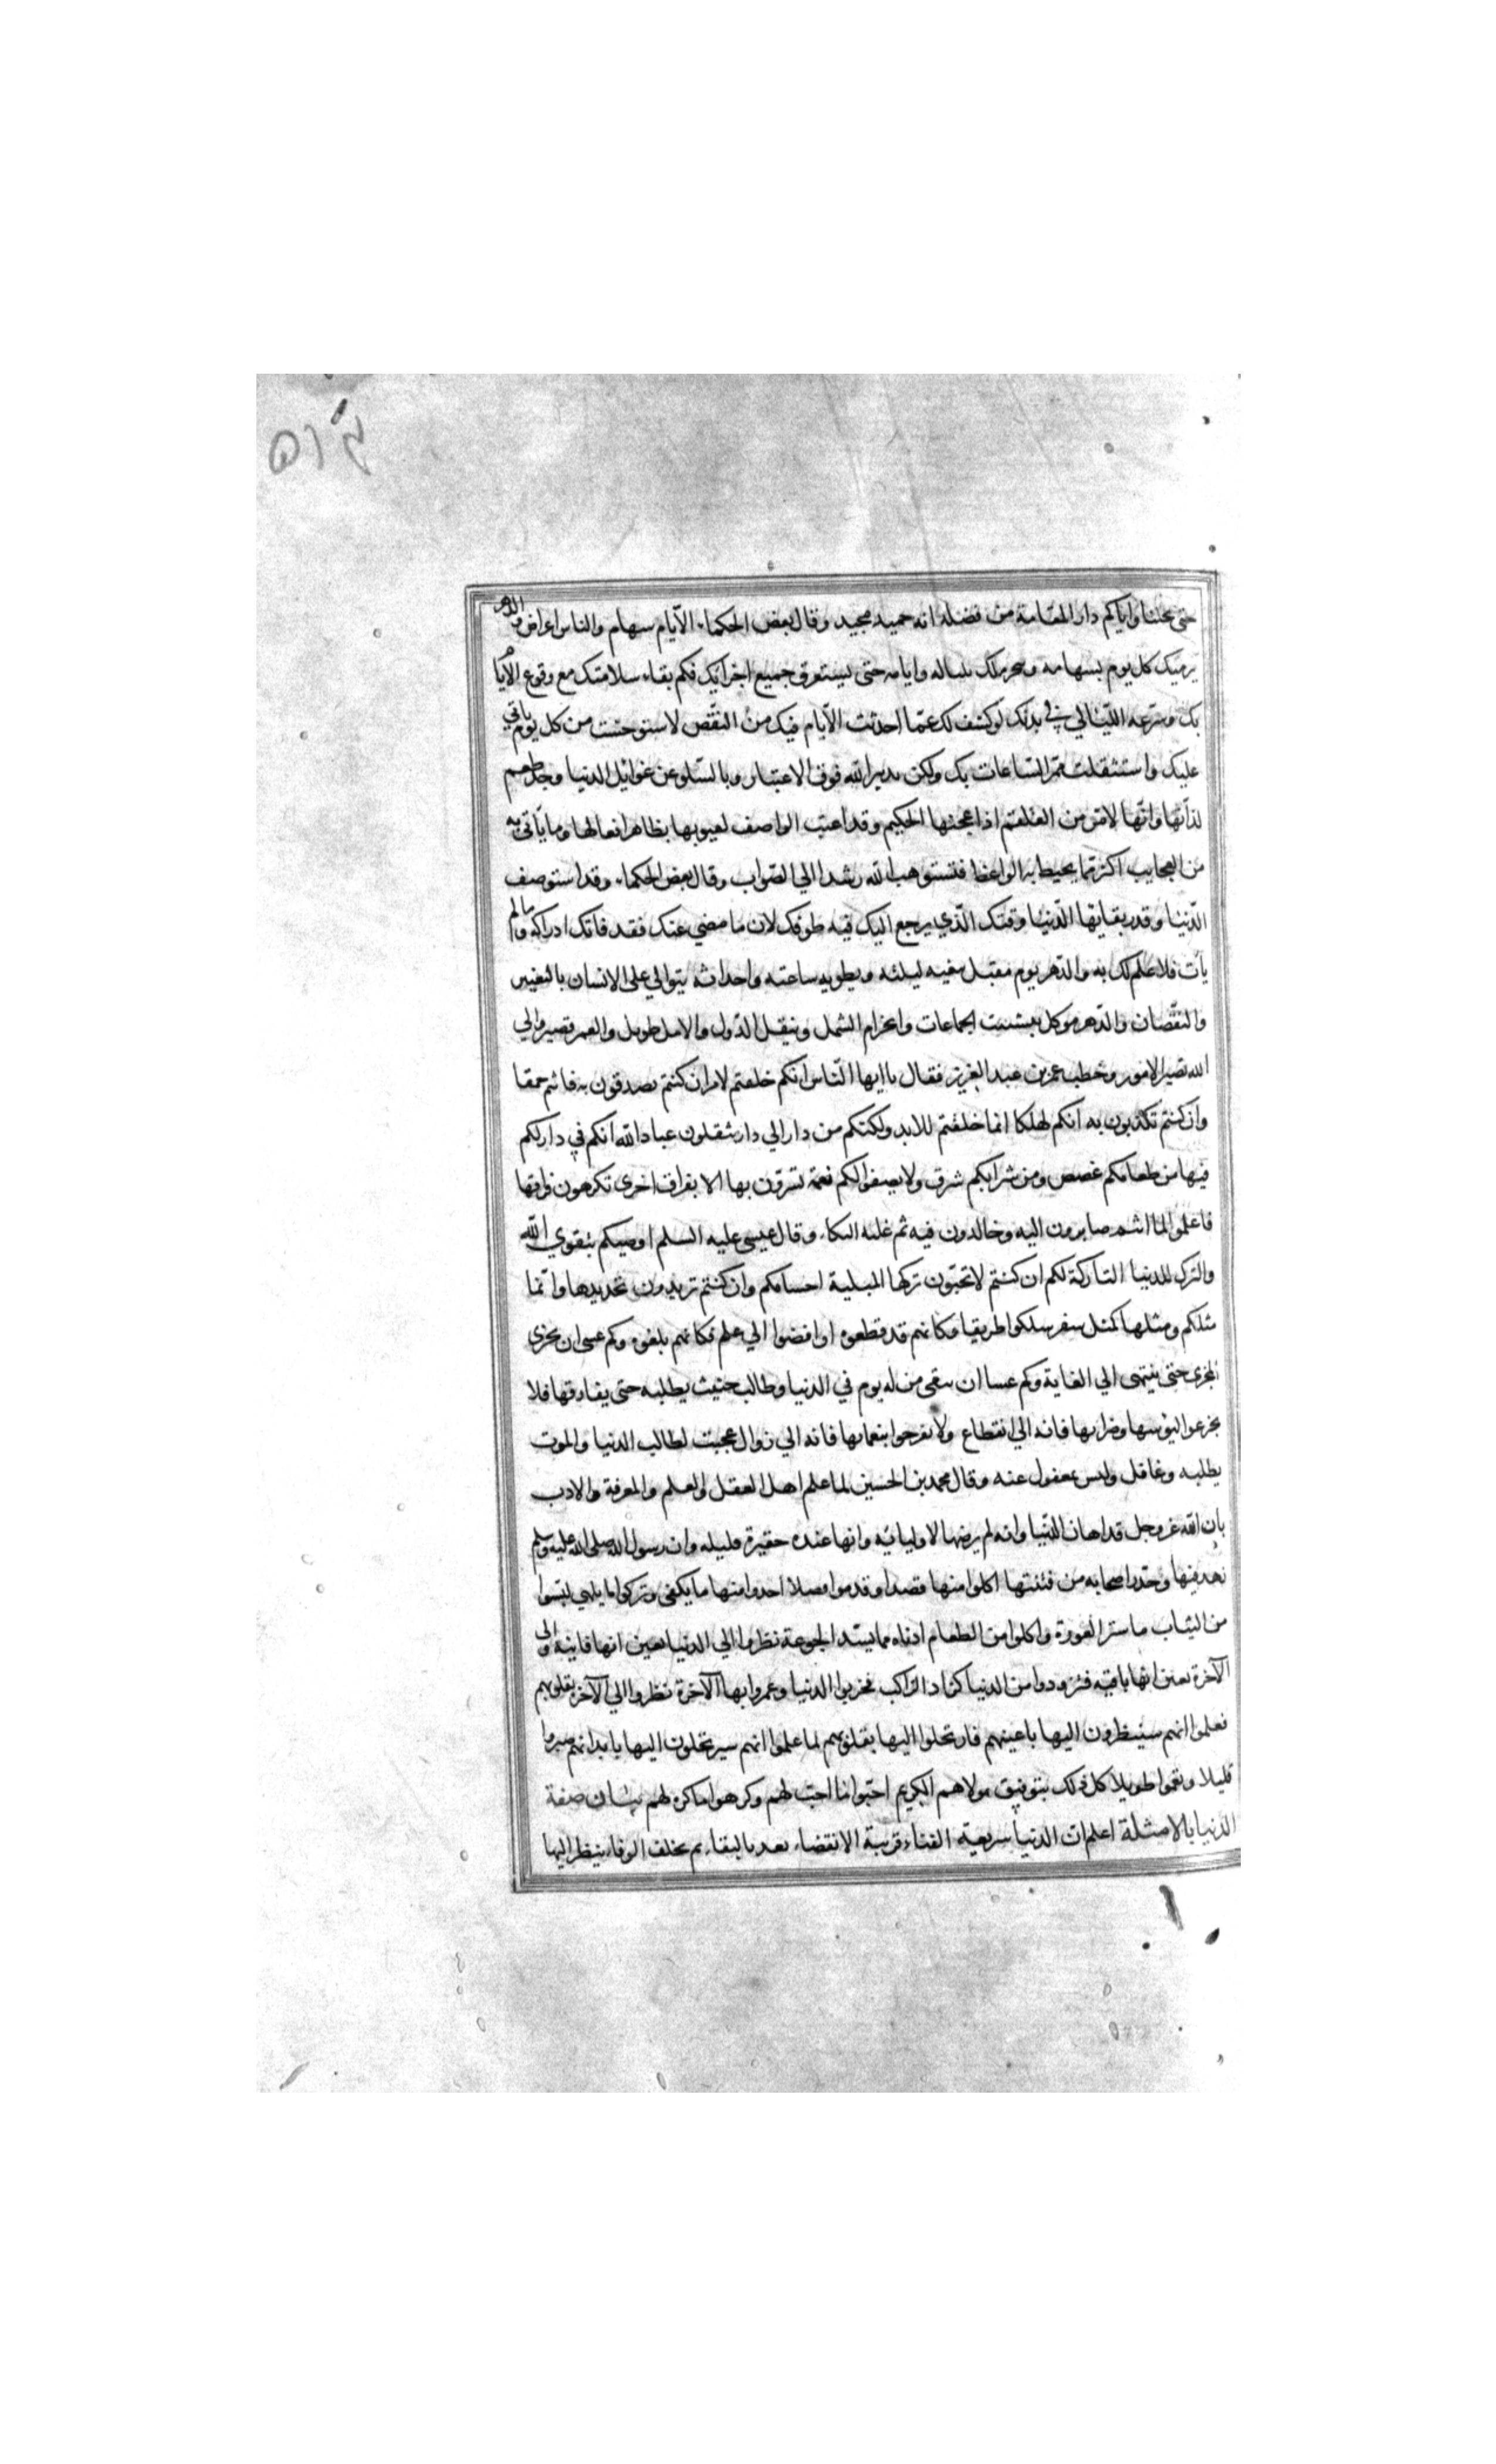 ٥١٤
حتى يحلنا واياكم دار المقامة من فضله انه حميد مجيد وقال بعض الحكماء الأيام سهام والناس اعراض والدهر
يرميك كل يوم بسهامه ويخرمك بلياله وايامه حتى يستغرق جميع اجزائك فكم بقاء سلامتك مع وقوع الأيام
بك وسرعه الليالي في بدنك لو كشف لك عما احدثت الأيام فيك من النقص لاستوحشت من كل يوم ياتي
عليك واستثقلت ممر الساعات بك ولكن تدبير الله فوق الاعتبار وبالسلو عن غوائل الدنيا وجد طعم
لذاتها وانها لامر من العلقم اذا عجنها الحكيم وقد اعيت الواصف لعيوبها بظاهر افعالها وما يأتي به
من العجايب اكثر مما يحيط به الواعظ فنستوهب الله رشدا الي الصواب وقال بعض الحكماء وقد استوصف
الدنيا وقدر بقايها الدنيا وقتك الذي يرجع اليك فيه طرفك لان ما مضي عنك فقد فاتك ادراكه وما لم
يأت فلا علم لك به والدهر يوم مقبل ينعيه ليلته ويطويه ساعته واحداثه يتوالي على الانسان بالتغيير
والنقصان والدهر موكل بتشتيت الجماعات وانخرام الشمل وتنقل الدول والامل طويل والعمر قصير والي
الله تصير الامور وخطب عمر بن عبد العزيز فقال يا ايها الناس انكم خلقتم لامر ان كنتم تصدقون به فانتم حمقا
وان كنتم تكذبون به انكم لهلكا انما خلقتم للابد ولكنكم من دار الي دار تنقلون عباد الله انكم في دار لكم
فيها من طعامكم غصص ومن شرابكم شرق ولا يصفوا لكم نعمة تسرون بها الا بفراق اخرى تكرهون فراقها
فاعلموا لما انتم صايرون اليه وخالدون فيه ثم غلبه البكاء وقال عيسى عليه السلم اوصيكم بتقوي الله
والترك للدنيا التاركة لكم ان كنتم لا تحبون تركها المبلية اجسامكم وان كنتم تريدون تجديدها وانما
مثلكم ومثلها كمثل سفر سلكوا طريقا وكانهم قد قطعوه او افضوا الي علم فكانهم بلغوه وكم عسى ان يجرى
المجرى حتى ينتهى الي الغاية وكم عسا ان يبقى من له يوم في الدنيا وطالب حثيث يطلبه حتى يفارقها فلا
تجزعوا لبؤسها وضرائها فانه الي انقطاع ولا تفرحوا بنعمايها فانه الي زوال عجبت لطالب الدنيا والموت
يطلبه وغافل وليس بمغفول عنه وقال محمد بن الحسين لما علم اهل العقل والعلم والمعرفة والادب
بان الله عز وجل قد اهان الدنيا وانه لم يرضها لاوليائه وانها عنده حقيرة قليله وان رسول الله صلى الله عليه وسلم
زهد فيها وحذر اصحابه من فتنتها اكلوا منها قصدا وقدموا فضلا اخذوا منها ما يكفى وتركوا ما يلهي لبسوا
من الثياب ما ستر العورة واكلوا من الطعام ادناه مما يسد الجوعة نظروا الي الدنيا بعين انها فانية والى
الآخرة بعين انها باقيه فتزودوا من الدنيا كزاد الراكب فخربوا الدنيا وعمروا بها الآخرة نظروا الي الآخرة بقلوبهم
فعلموا انهم سينظرون اليها باعينهم فارتحلوا اليها بقلوبهم لما علموا انهم سيرتحلون اليها بابدانهم صبروا
قليلا ونعموا طويلا كل ذلك بتوفيق مولاهم الكريم احبوا ما احب لهم وكرهوا ما كره لهم بيان صفة
الدنيا بالامثلة اعلم ان الدنيا سريعة الفناء قريبة الانقضاء بعد بالبقاء ثم يخلف الوفاء ينظر اليها